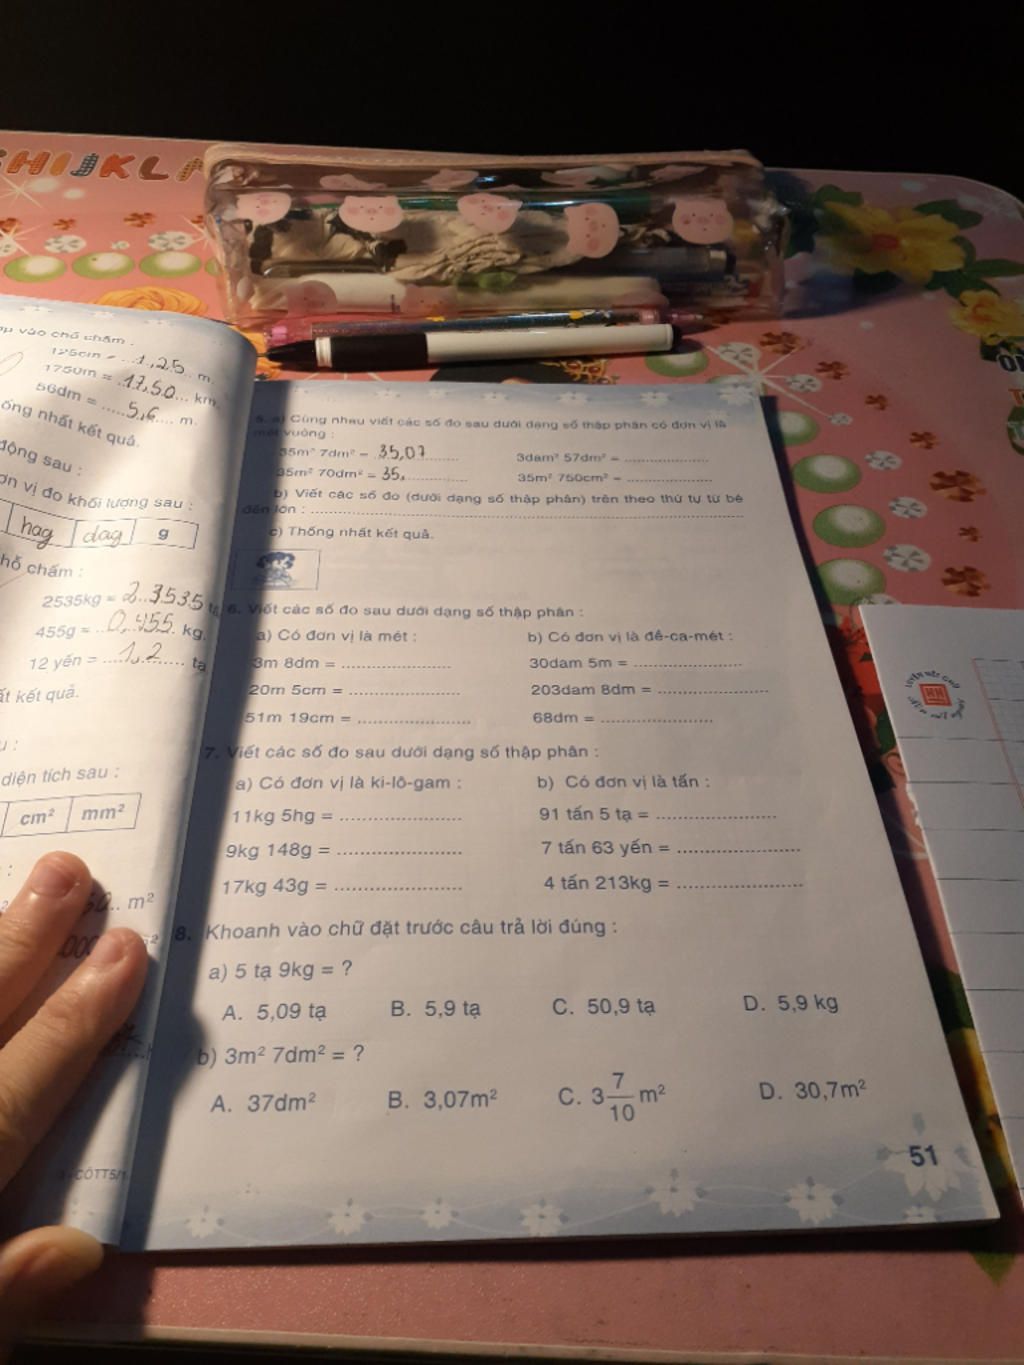 HIJKL
vào chỗ chấm :
125cm = 1,25 m.
1750m = 17,50 km.
56dm = 5,6 m.
ống nhất kết quả.
động sau :
ơn vị đo khối lượng sau :
hag dag g
hỗ chấm :
2535kg =
455g = 0,455 kg.
12 yến = 1,2 tạ
ất kết quả.
diện tích sau :
cm² mm²
m²
5. a) Cùng nhau viết các số đo sau dưới dạng số thập phân có đơn vị là
mét vuông :
35m² 7dm² = 35,07 3dam² 57dm² = ....................
35m² 70dm² = 35, 35m² 750cm² = ....................
b) Viết các số đo (dưới dạng số thập phân) trên theo thứ tự từ bé
đến lớn : ....................
c) Thống nhất kết quả.
6. Viết các số đo sau dưới dạng số thập phân :
a) Có đơn vị là mét : b) Có đơn vị là đề-ca-mét :
3m 8dm = .................... 30dam 5m = ....................
20m 5cm = .................... 203dam 8dm = ....................
51m 19cm = .................... 68dm = ....................
7. Viết các số đo sau dưới dạng số thập phân :
a) Có đơn vị là ki-lô-gam : b) Có đơn vị là tấn :
11kg 5hg = .................... 91 tấn 5 tạ = ....................
9kg 148g = .................... 7 tấn 63 yến = ....................
17kg 43g = .................... 4 tấn 213kg = ....................
8. Khoanh vào chữ đặt trước câu trả lời đúng :
a) 5 tạ 9kg = ?
A. 5,09 tạ B. 5,9 tạ C. 50,9 tạ D. 5,9 kg
b) 3m² 7dm² = ?
A. 37dm² B. 3,07m² C. 3 7/10 m² D. 30,7m²
51